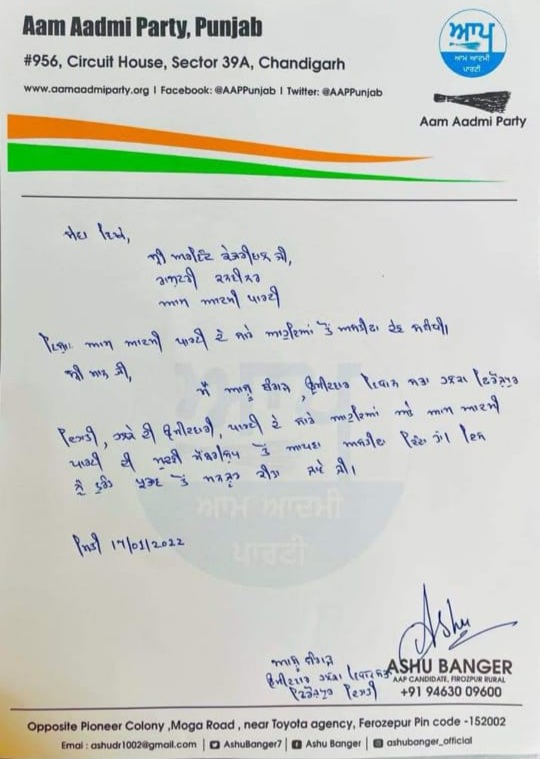 Aam Aadmi Party, Punjab
#956, Circuit House, Sector 39A, Chandigarh
www.aamaadmiparty.org I Facebook: @AAPPunjab I Twitter: @AAPPunjab
ਆਪ
ਆਮ ਆਦਮੀ
ਪਾਰਟੀ
Aam Aadmi Party
ਸੇਵਾ ਵਿਖੇ,
ਸ੍ਰੀ ਅਰਵਿੰਦ ਕੇਜਰੀਵਾਲ ਜੀ,
ਰਾਸ਼ਟਰੀ ਕਨਵੀਨਰ
ਆਮ ਆਦਮੀ ਪਾਰਟੀ
ਵਿਸ਼ਾ: ਆਮ ਆਦਮੀ ਪਾਰਟੀ ਦੇ ਸਾਰੇ ਅਹੁਦਿਆਂ ਤੋਂ ਅਸਤੀਫਾ ਦੇਣ ਸਬੰਧੀ।
ਸ੍ਰੀ ਮਾਨ ਜੀ,
ਮੈਂ ਆਸ਼ੂ ਬੰਗੜ, ਉਮੀਦਵਾਰ ਵਿਧਾਨ ਸਭਾ ਹਲਕਾ ਫਿਰੋਜ਼ਪੁਰ
ਦਿਹਾਤੀ, ਹਲਕੇ ਦੀ ਉਮੀਦਵਾਰੀ, ਪਾਰਟੀ ਦੇ ਸਾਰੇ ਅਹੁਦਿਆਂ ਅਤੇ ਆਮ ਆਦਮੀ
ਪਾਰਟੀ ਦੀ ਮੁਢਲੀ ਮੈਂਬਰਸ਼ਿਪ ਤੋਂ ਆਪਣਾ ਅਸਤੀਫਾ ਦਿੰਦਾ ਹਾਂ। ਇਸ
ਨੂੰ ਤੁਰੰਤ ਪ੍ਰਭਾਵ ਤੋਂ ਮਨਜ਼ੂਰ ਕੀਤਾ ਜਾਵੇ ਜੀ।
ਆਮ ਆਦਮੀ
ਪਾਰਟੀ
ਮਿਤੀ 17/01/2022
Ashu
ਆਸ਼ੂ ਬੰਗੜ
ਉਮੀਦਵਾਰ ਹਲਕਾ
ਫਿਰੋਜ਼ਪੁਰ ਦਿਹਾਤੀ
ASHU BANGER
AAP CANDIDATE, FIROZPUR RURAL
+91 94630 09600
Opposite Pioneer Colony ,Moga Road , near Toyota agency, Ferozepur Pin code -152002
Emai : ashudr1002@gmail.com | AshuBanger7 | Ashu Banger | ashubanger_official